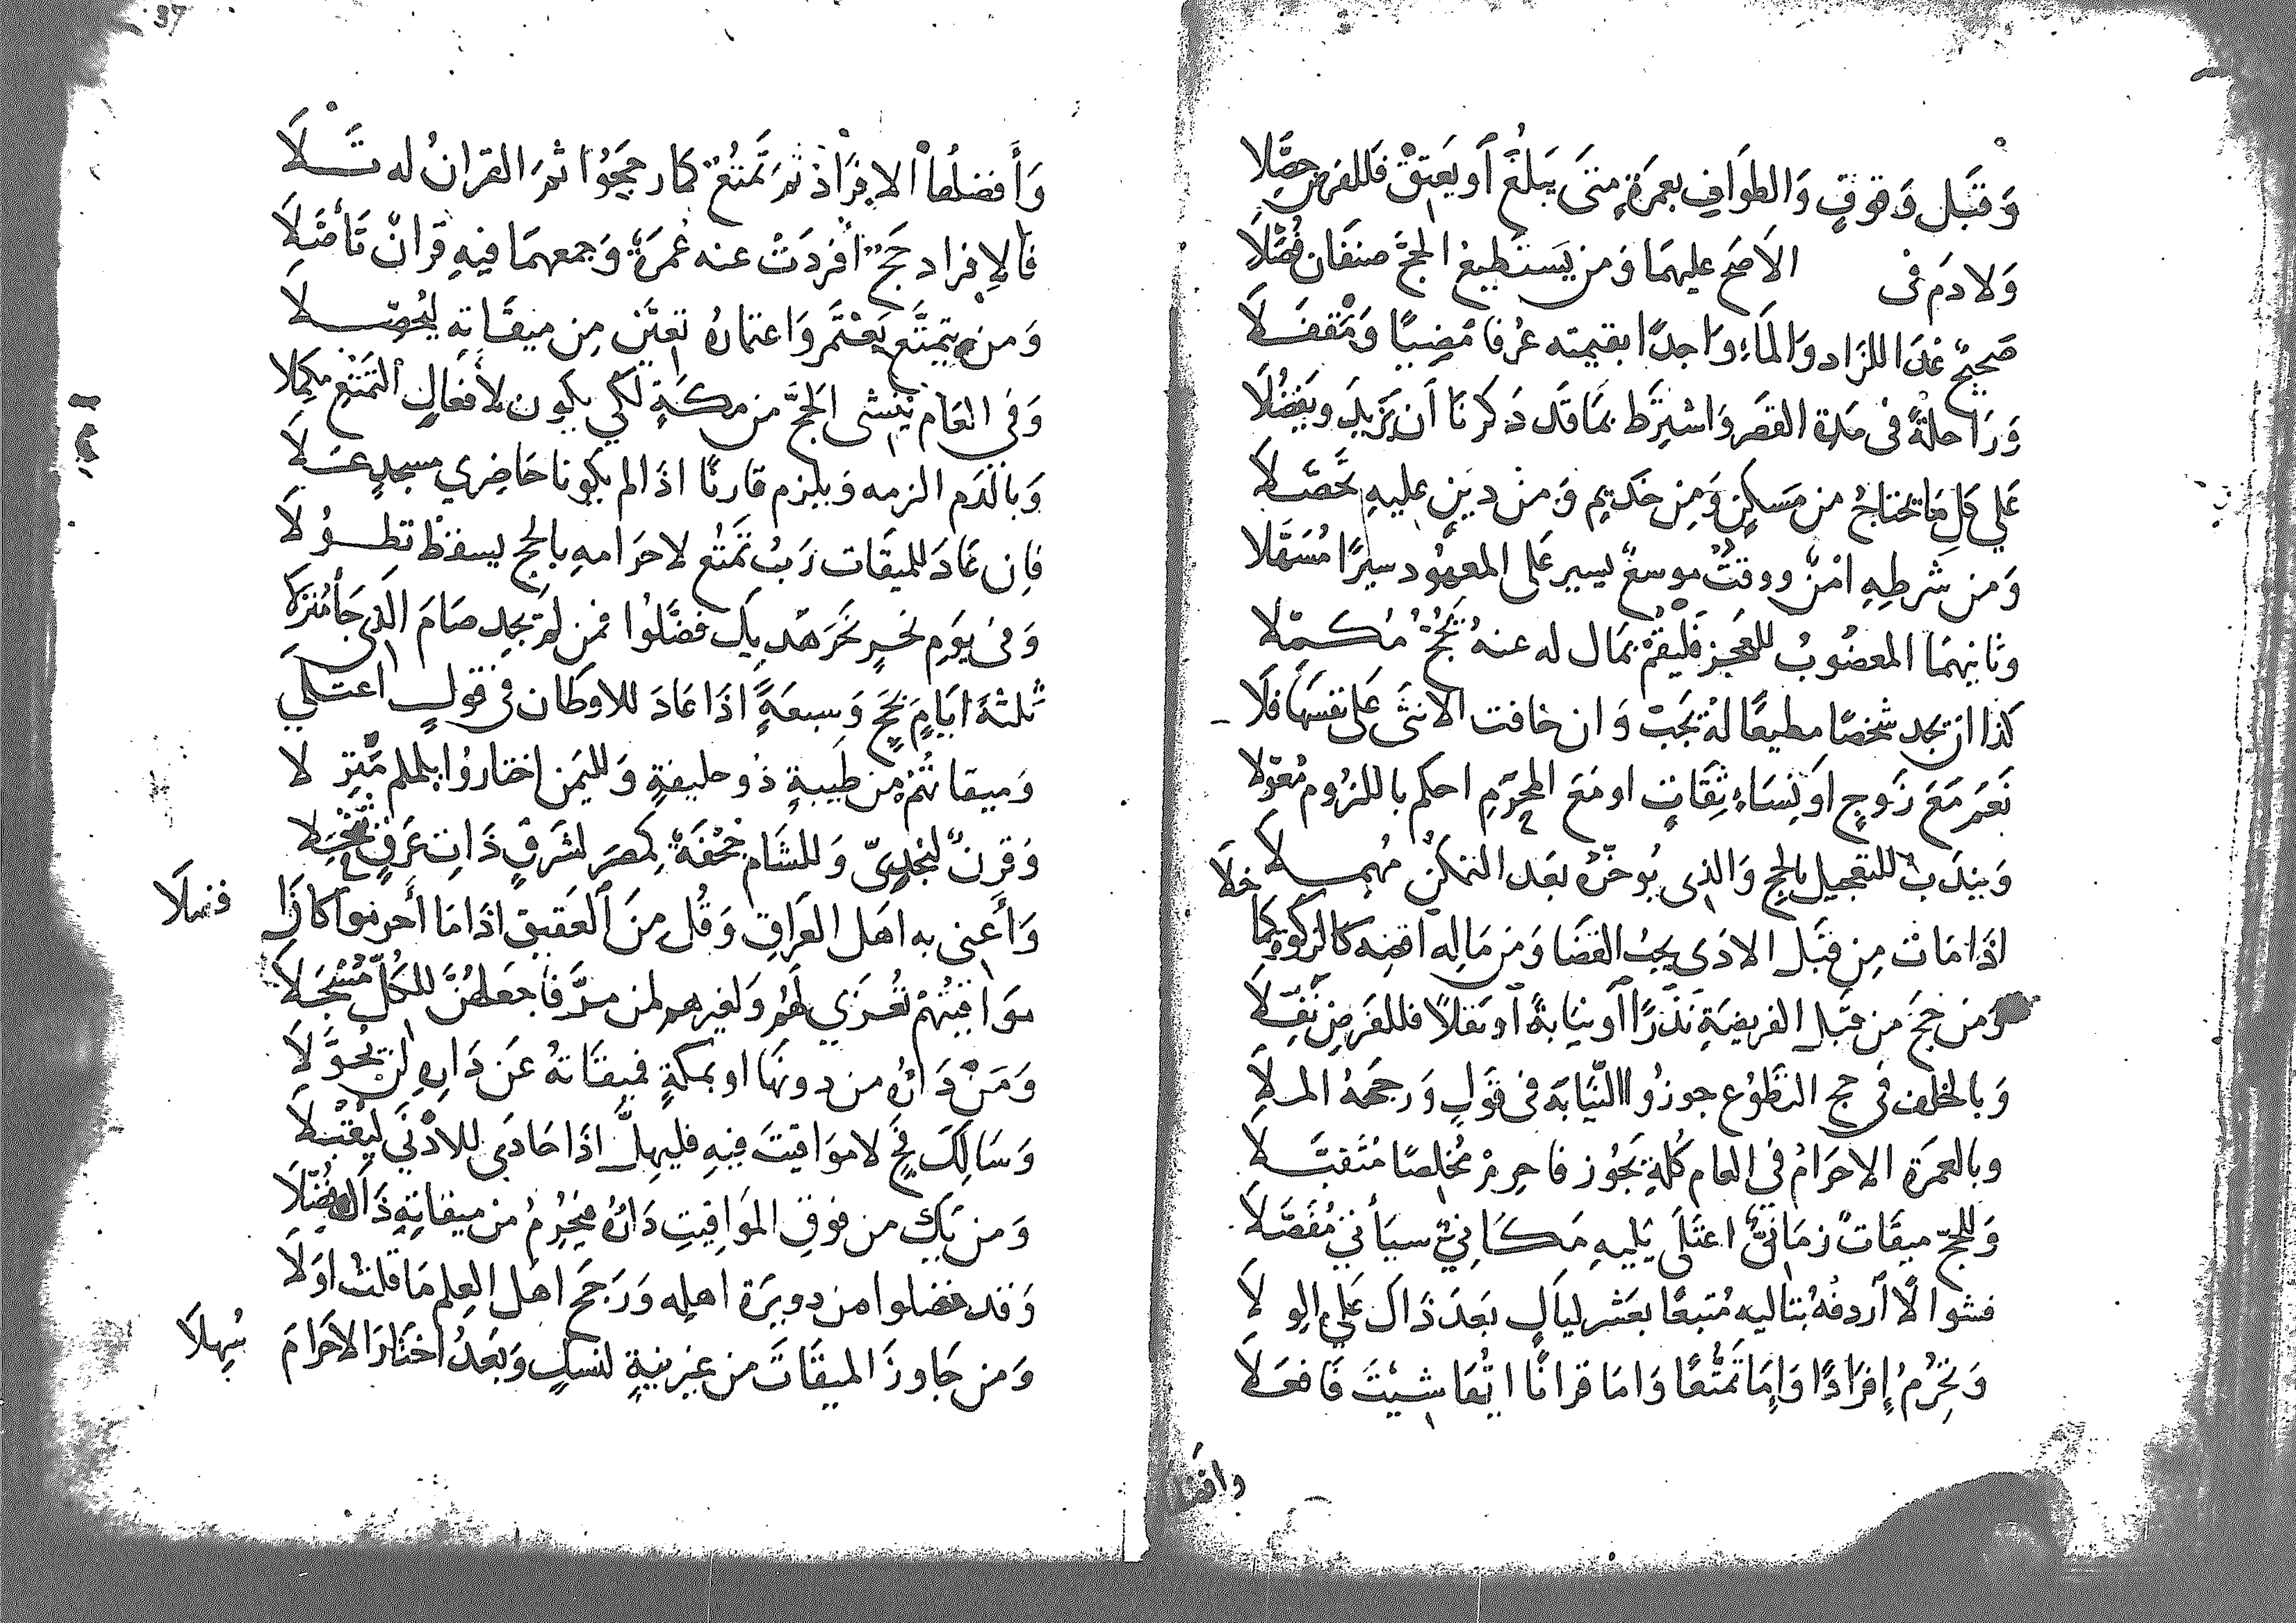 وَقَبْلَ وَقُوفٍ وَالطَوَافِ بعمرَةٍ مَتَى يَبلُغ أَو يَعتِقْ فَللفَرضِ حصَّلا
وَلا دَم فى الاصَح عليهمَا وَمن يَستطيعُ الحجَّ صنفَان فُصِّلَا
صَحيحٌ غدَا للزَاد وَالمَاءِ وَاجدًا بقيمته عُرفا مُضِيًا وَمَقفَلَا
وَرَاحلةً فى مدَة القصَر وَاشترَط بمَا قَد ذكرنَا أَن يَزيدَ ويَفضُلَا
عَلي كل مَا يحتاجُ من مَسكنٍ وَمِن خَديمٍ وَمنْ دينٍ عليهِ تحَصَّلَا
وَمن شَرطِهِ امْنٌ ووقتٌ موسعٌ يسير عَلى المعهُود سيرًا مُسَهَّلا
وثانيهمَا المعضُوبُ للعجز فَليُقمْ بمَال له عنهُ تحُجُّ مُكملا
كذا ان تجد شخصًا مطيعًا لهُ تجَبْ وَان خافت الانثَى عَلى نفسهَا فلَا
نَعَم مَعَ زَوجٍ او نِسَاءٍ ثِقَاتٍ او مَعَ المحرَمِ احكم باللزُوم مُعَوّلا
وَيندَبُ للتعجيل بالحج وَالذى يُوخّرُهُ بعَد التمكنِ مُهملَا
اذَا مَات مِن قبَل الادَى يجبُ القضَا وَمن مَاله اقضه كالزكوة كمَا خلَا
وَمن حجَّ من قبَل الفريضَةِ نَذرًا أَو نِيَابةً أَو نفلًا فللفَرضِ نَفَّلَا
وَبالخلف فى حج التطوُع جوزُوا النّيَابَة فى قَولٍ وَرجحَهُ الملَا
وبالعمرَة الاحرَامُ فى العَام كُلّهِ يَجُوز فاحرِمْ مُخلصًا مُتَقبَّلَا
وَللحجّ ميقَاتٌ زمَانىٌّ اعتَلَى يَليهِ مَكَانىٌّ سيَأتى مُفَصَّلَا
فشوالًا أَردفهُ بتاليه مُتبعًا بعَشر ليَالٍ بَعَد ذَاكَ عَلى الوِلَا
وَتحرمُ إِفرَادًا وَإِمَا تَمتُّعًا وَامَا قرانًا ايهَا شِيتَ فَافعَلَا
وافضل
37
وَأَفضلُها الافرَادُ ثمَّ تَمَتُّعٌ كمَا رجحَوُا ثمَّ القرَانُ له تَلَا
فَالإفراد حَجٌّ أفْردَتْ عنه عُمرَةٌ وَجمعهمَا فيهِ قرَانٌ تَأصَّلَا
وَمن يتمتَّع يَعْتمَر وَاعتمارُهُ تعيّن مِن ميقَاته ليُحصّلَا
وَفى العَام ينشى الحَجَّ من مكَةٍ لكي يكون لأَفعَالِ التمَتع مكملا
وَبالدَم الزمه وَيلزم قارنًا اذَا لم يكونا حَاضِري مسجدٍ عَلَا
فان عَادَ للميقَات رَبُ تمتُع لاحرَامهِ بالحج يسقط تطوُلَا
وَفى يوَم نحرٍ نحرَ هَديك فضَّلُوا فمن لم يجِد صَامَ الذى جَا مُنزلَا
ثلثةَ ايَامِ بحَجٍّ وَسبعَةً اذَا عَادَ للاوطَان فى قولٍ اعتلَي
وَميقاتُهُم من طَيبةٍ ذُو حليفةٍ وَلليمَن اختارُوا يلملم مَنزلا
وَقرنٌ لنجدِيّ وَللشَام جحْفَةٌ كمصر لشَرقٍ ذَاتِ عَرقٍ تنخّلا
وَأَعنى به اهَل العرَاقِ وَقُل منَ العَقيق اذَا مَا أَحرموا كانَ فضلَا
موَاقيتُهمْ تُعزَي لهُم وَلغيرهم لمن مرَّ فاجعَلهُنَّ للكُلّ مُسْجَلَا
وَمَنْ دَارُهُ من دونهَا او بمكةٍ فميقَاتهُ عَن دَارِهِ لن يُحوَّلَا
وَسَالك فجٍّ لا موَاقيتَ فيهِ فليهلَّ اذَا حَاذَى للادْنَي ليُقْبَلَا
وَمن يَكُ من فوقِ المَوَاقيتِ دَارُهُ فيُحرِمُ من ميقَاتِهِ ذَاكَ فُضّلَا
وَقد فضلوا من دويرَة اهلِه وَرَجحَ اهَل العِلم مَا قلتُ اوَلَا
وَمن جَاوزَ الميقَاتَ من غير نيةٍ لنسكٍ وَبَعدُ اختَارَ الاحَرامَ سُهلَا